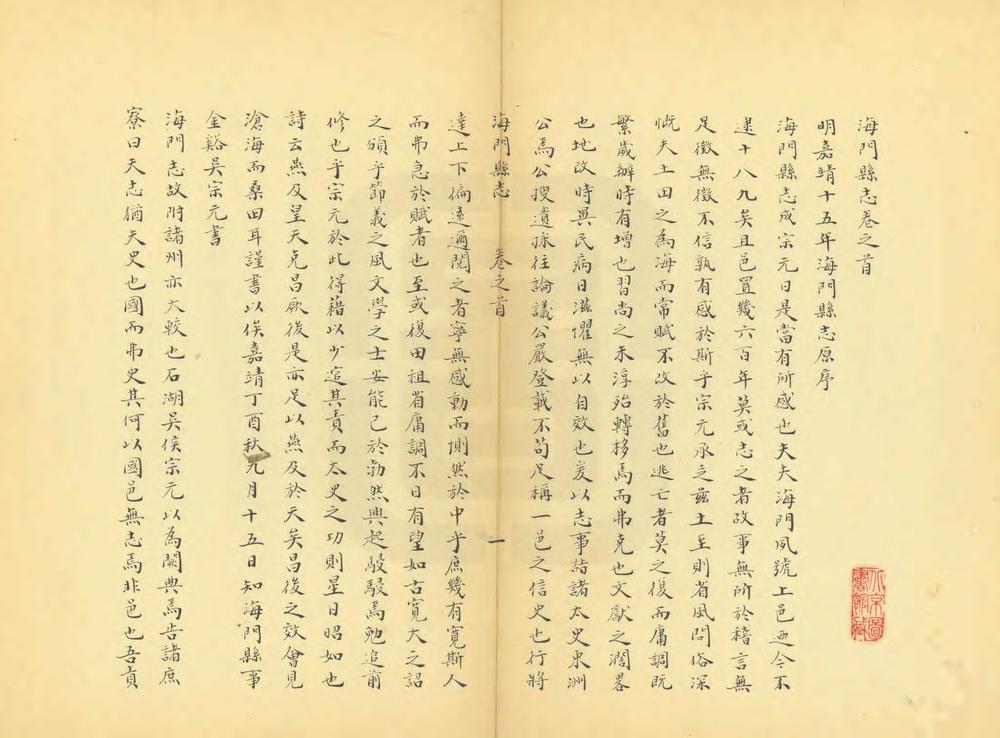 海門縣志卷之首
明嘉靖十五年海門縣志原序
海門縣志成宗元曰是當有所感也夫夫海門夙號上邑迺今不
逮十八九矣且邑置幾六百年莫或志之者故事無所於稽言無
足徵無徵不信孰有感於斯乎宗元承乏茲土至則省風問俗深
慨夫土田之為海而常賦不改於舊也逃亡者莫之復而庸調既
繁歲辦時有增也習尚之禾淳殆轉移焉而弗克也文獻之濶畧
也地改時異民病日滋懼無以自效也爰以志事詣諸太史東洲
公焉公搜遺採往論議公嚴登載不苟足稱一邑之信史也行將
海門縣志 卷之首 一
達上下偏遠邇閱之者寧無感動而惻然於中乎庶幾有寬斯人
而弗急於賦者也至或復田租省庸調不日有望如古寬大之詔
之頒乎節義之風文學之士安能已於勃然興起駸駸焉勉追前
修也乎宗元於此得藉以少逭其責而太史之功則星日昭如也
詩云燕及皇天克昌厥後是亦足以燕及於天矣昌後之效會見
滄海而桑田耳謹書以俟嘉靖丁酉秋九月十五日知海門縣事
金谿吳宗元書
海門志故附諸州亦大較也石湖吳侯宗元以為闕典焉告諸庶
寮曰天志猶天史也國而弗史其何以國邑無志焉非邑也吾責